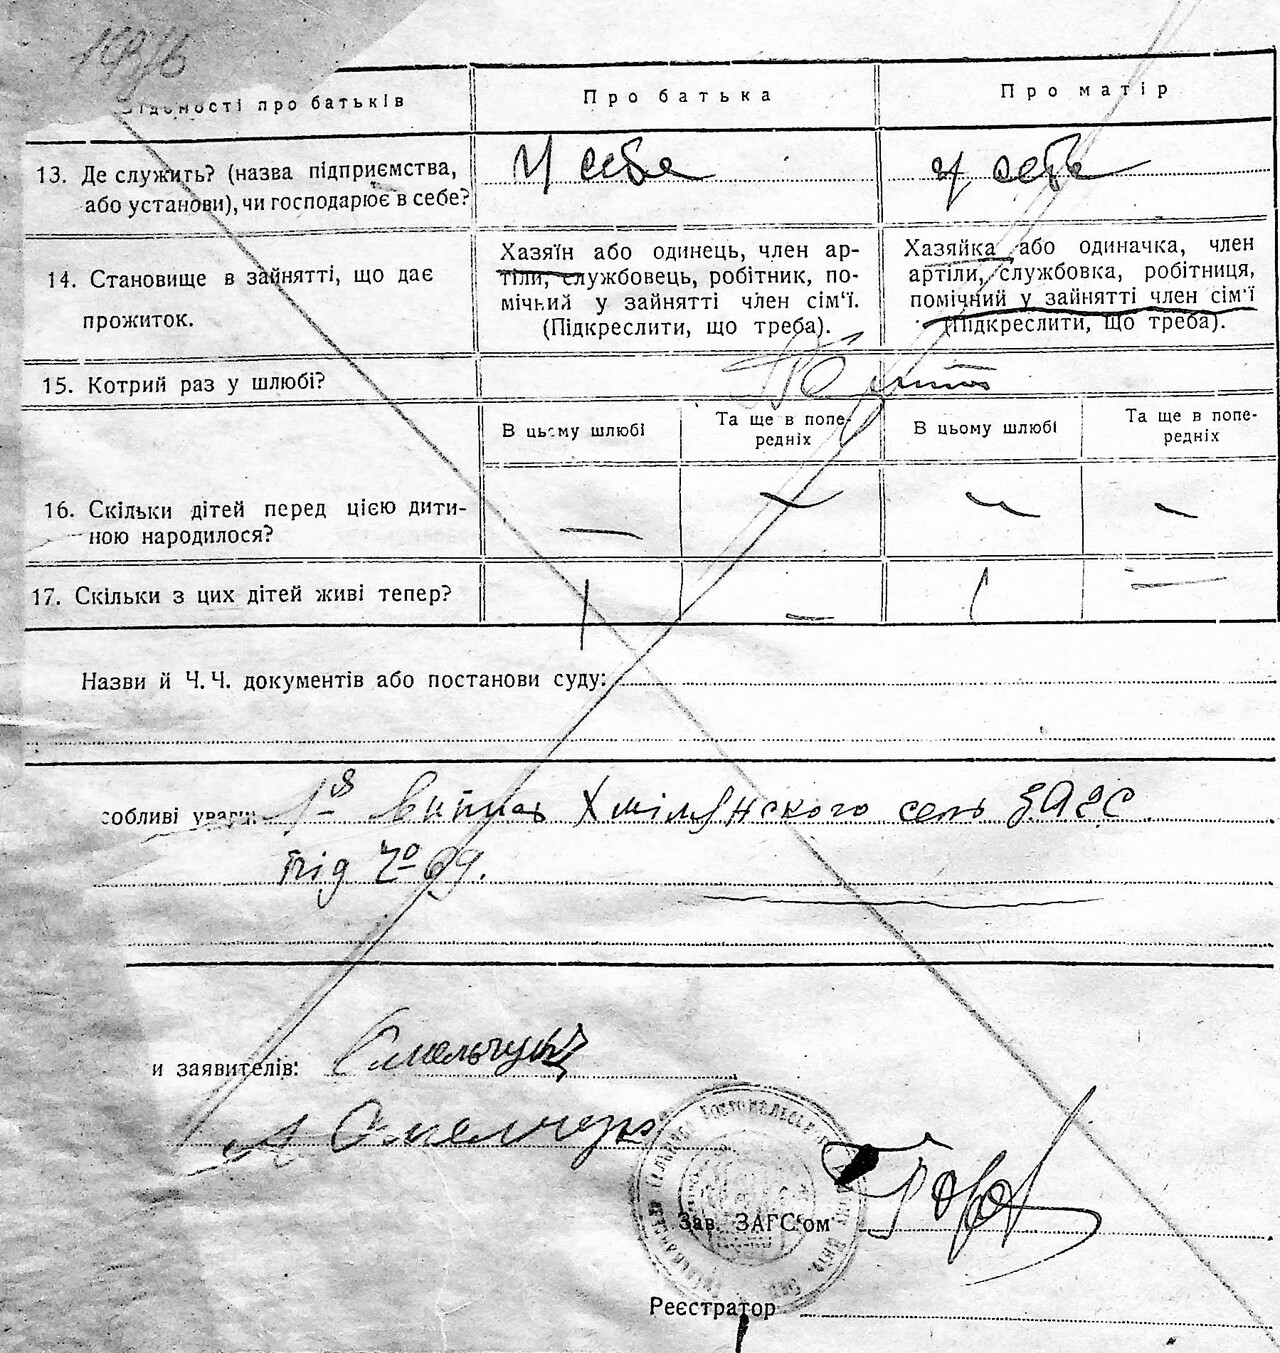 Відомості про батьків
Про батька
Про матір
13. Де служить? (назва підприємства, або установи), чи господарює в себе?
У себе
у себе
14. Становище в зайнятті, що дає прожиток.
Хазяїн або одинець, член ар-
тіли, службовець, робітник, по-
мічний у зайнятті член сім'ї.
(Підкреслити, що треба).
Хазяйка або одиначка, член
артіли, службовка, робітниця,
помічний у зайнятті член сім'ї
(Підкреслити, що треба).
15. Котрий раз у шлюбі?
В цьому шлюбі
Та ще в попе-
редніх
В цьому шлюбі
Та ще в попе-
редніх
16. Скільки дітей перед цією дити-
ною народилося?
— — — —
17. Скільки з цих дітей живі тепер?
1 — 1 —
Назви й Ч.Ч. документів або постанови суду:
собливі уваги: Хмілянского сель ЗАГС
під № 69.
и заявителів: Омельчук
А Омелчук
Зав. ЗАГС'ом
Реєстратор